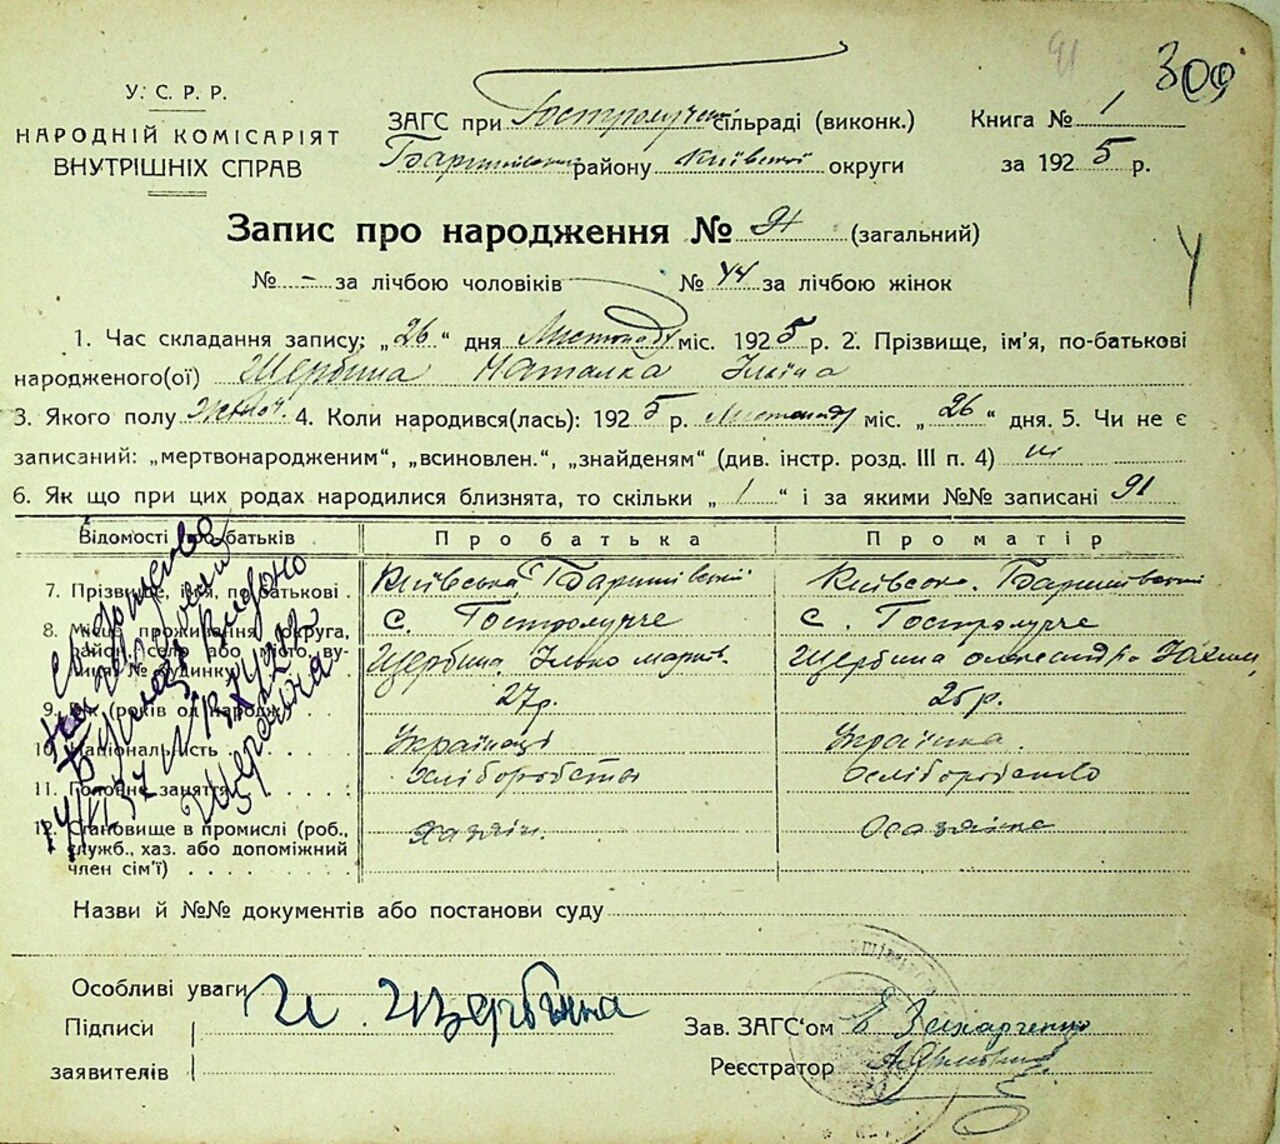 300
У. С. Р. Р.
НАРОДНІЙ КОМІСАРІЯТ
ВНУТРІШНІХ СПРАВ
ЗАГС при Гостролучен сільраді (виконк.)
району Київської округи
Книга № 1
за 1925 р.
Запис про народження № 91 (загальний)
№ – за лічбою чоловіків № 44 за лічбою жінок
1. Час складання запису: „26“ дня Листопада міс. 1925 р. 2. Прізвище, ім'я, по-батькові
народженого(ої) Щербина Наталка Ількна
3. Якого полу жіноч. 4. Коли народився(лась): 1925 р. Листопада міс. „26“ дня. 5. Чи не є
записаний: „мертвонародженим“, „всиновлен.“, „знайденям“ (див. інстр. розд. III п. 4) ні
6. Як що при цих родах народилися близнята, то скільки „1“ і за якими №№ записані 91
Відомості про батьків Про батька Про матір
7. Прізвище, ім'я, по-батькові . Київська, Баришівський Київська. Баришівський
8. Місце проживання (округа, с. Гостролучче с. Гостролучче
район, село або місто, ву-
лиця № будинку) Щербина Ілько Марків. Щербина Олександра
9. Вік (років од народж.) 27р. 25р.
10. Національність Українці Українка.
11. Головне заняття хліборобство хліборобство
12. Становище в промислі (роб., Хазяїн. Хазяїна
служб., хаз. або допоміжний
член сім'ї)
Назви й №№ документів або постанови суду
Особливі уваги
Підписи И. Щербина
заявителів
Зав. ЗАГС'ом Е Захарченко
Реєстратор